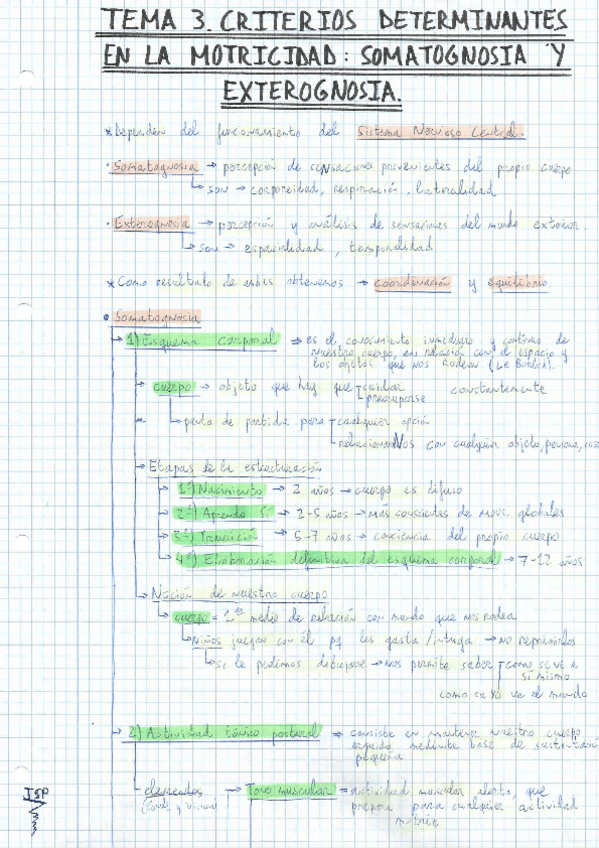 TEMA 3. CRITERIOS DETERMINANTES
EN LA MOTRICIDAD: SOMATOGNOSIA Y
EXTEROGNOSIA.
* Dependen del funcionamiento del Sistema Nervioso Central.
· Somatognosia → percepción de sensaciones provenientes del propio cuerpo
↳ son → corporeidad, respiración, lateralidad
· Exterognosia → percepción y análisis de sensaciones del mundo exterior.
↳ son → espacialidad, temporalidad
* Como resultado de ambas obtenemos → coordinación y equilibrio
• Somatognosia
→ 1) Esquema corporal → es el conocimiento inmediato y continuo de
nuestro cuerpo, en relación con el espacio y
los objetos que nos rodean (Le Boulch).
cuerpo → objeto que hay que cuidar constantemente
preocuparse
↳ punto de partida para cualquier
relacionarNos con cualquier objeto, persona, cosa
→ Etapas de la estructuración
→ 1ª) Nacimiento → 2 años → cuerpo es difuso
→ 2ª) → 2-5 años → más conscientes de movs. globales
→ 3ª) Transición → 5-7 años → conciencia del propio cuerpo
→ 4ª) Elaboración definitiva del esquema corporal → 7-12 años
→ Noción de nuestro cuerpo
→ cuerpo = 1er medio de relación con mundo que nos rodea
↳ Niños juegan con él pq les gusta/intriga → no reprimirlos
↳ si le pedimos dibujarse → nos permite saber como se ve a
sí mismo
como ve el mundo
→ 2) Actividad tónico postural → consiste en mantener nuestro cuerpo
erguido mediante base de sustentación
pequeña
elementos → Tono muscular → actividad muscular alerta, que
prepara para cualquier actividad
motriz